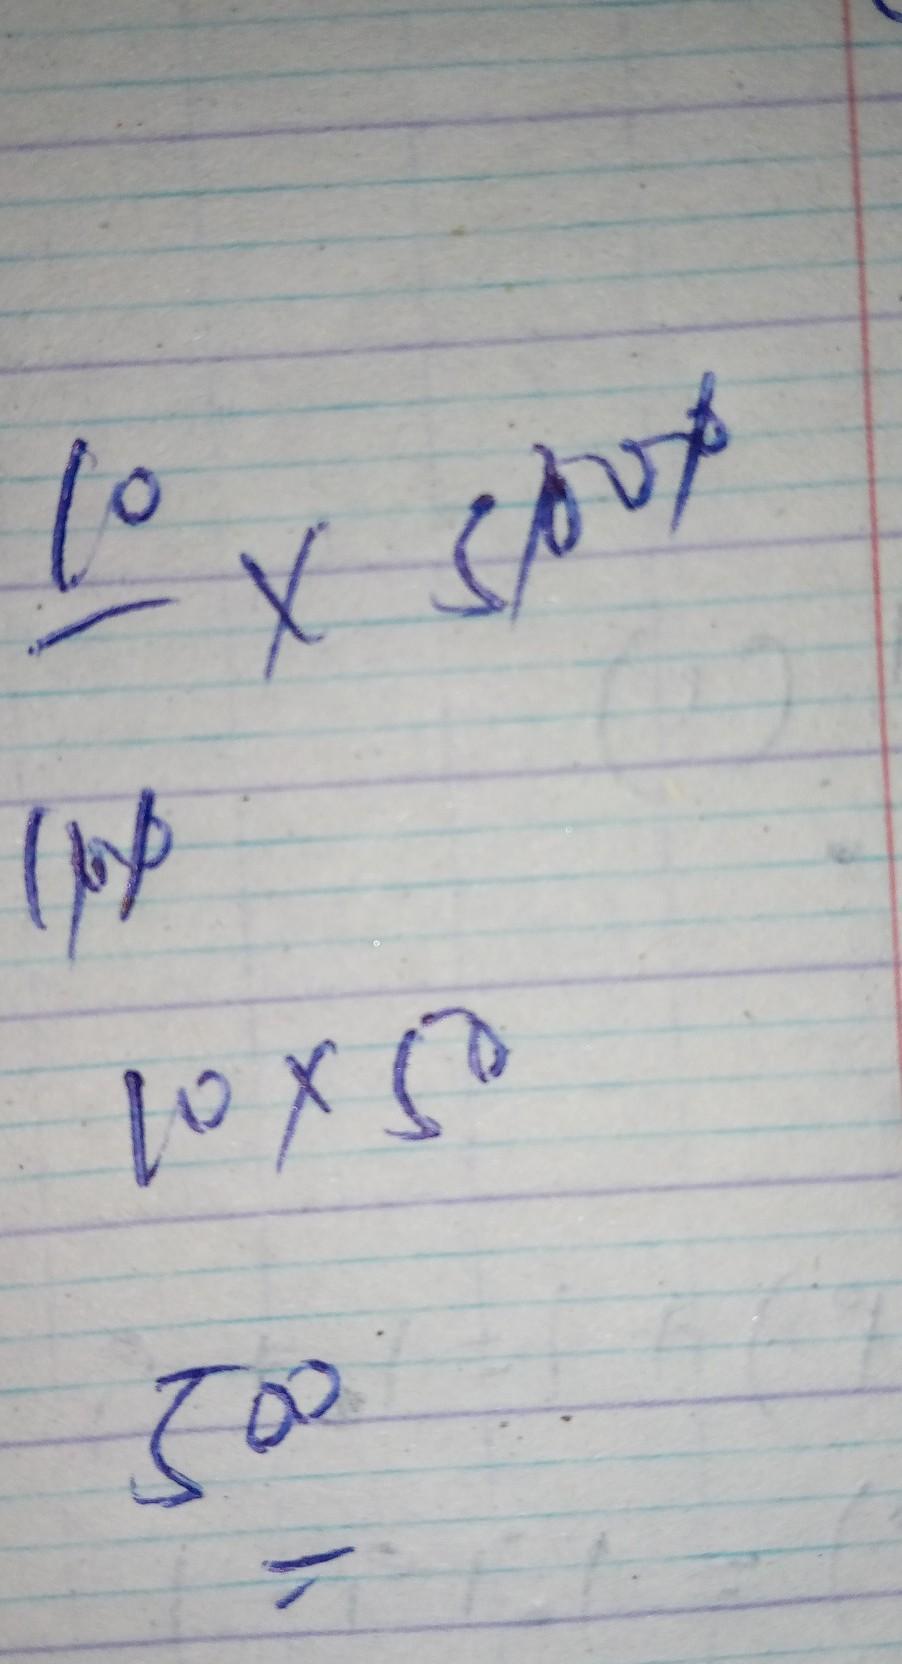 10 × 5000
100
10 × 50
500
=